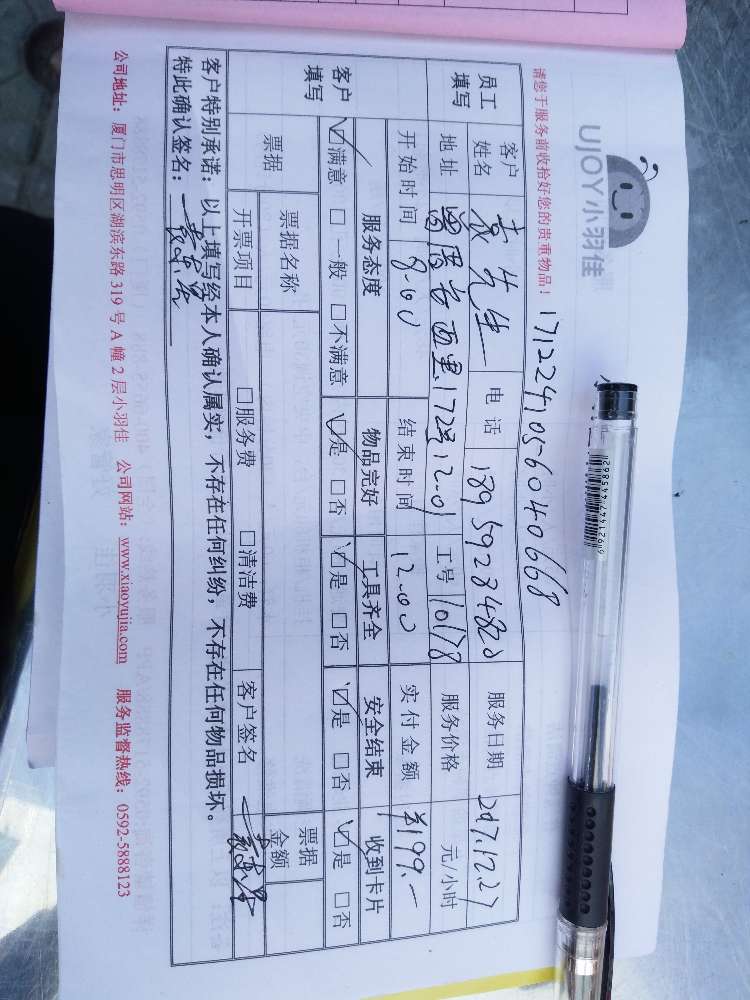 UJOY小羽佳
请您于服务前收拾好您的贵重物品！
171224105604 0668
员工填写 客户姓名 袁先生 电话 18959284820 服务日期 2017.12.27
地址 西里172号1201 工号 10178 服务价格 元/小时
开始时间 8:00 结束时间 12:00 实付金额 ¥199.-
客户填写 服务态度 物品完好 工具齐全 安全结束 收到卡片
☑满意 □一般 □不满意 ☑是 □否 ☑是 □否 ☑是 □否 ☑是 □否
票据 票据名称 票据金额
开票项目 □服务费 □清洁费 客户签名
客户特别承诺：以上填写经本人确认属实，不存在任何纠纷，不存在任何物品损坏。
特此确认签名：
公司地址：厦门市思明区湖滨东路319号A幢2层小羽佳 公司网站：www.xiaoyujia.com 服务监督热线：0592-5888123
6921734954862